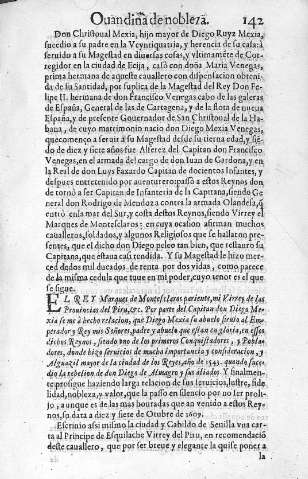 Quandiña de nobleza. 142
Don Christoual Mexia, hijo mayor de Diego Ruyz Mexia,
sucedio a su padre en la Veyntiquatria, y herencia de su casa: à
seruido a su Magestad en diuersas cosas, y vltimamẽte de Cor-
regidor en la ciudad de Ecija, casò con doña Maria Venegas,
prima hermana de aqueste cauallero con dispensacion obteni-
da de su Santidad, por suplica de la Magestad del Rey Don Fe-
lipe II. hermana de don Francisco Venegas cabo de las galeras
de España, General de las de Cartagena, y de la flota de nueua
España, y de presente Gouernador de San Christoual de la Ha-
bana, de cuyo matrimonio nacio don Diego Mexia Venegas,
que començo a seruir à su Magestad desde su tierna edad, y siẽ-
do de diez y siete años fue Alferez del Capitan don Francisco
Venegas, en el armada del cargo de don Iuan de Gardona, y en
la Real de don Luys Faxardo Capitan de docientos Infantes, y
despues entretenido por auer reropassò a estos Reynos don-
de tornò a ser Capitan de Infanteria de la Capitana, siendo Ge-
neral don Rodrigo de Mendoza contra la armada Olandesa, q̃
entrò en la mar del Sur, y costa destos Reynos, siendo Virrey el
Marques de Montesclaros: en cuya ocasion afirman muchos
caualleros, soldados, y algunos Religiosos que se hallaron pre-
sentes, que el dicho don Diego peleo tan bien, que restauro su
Capitana, que estaua casi rendida. Y su Magestad le hizo mer-
ced de dos mil ducados de renta por dos vidas, como parece
de la misma cedula que tuue en mi poder, cuyo tenor es el que
se sigue.
EL REY Marques de Montesclaros pariente, mi Virrey de las
Prouincias del Piru, &c. Por parte del Capitan don Diego Me-
xia se me à hecho relacion, que Diego Mexia su abuelo siruio al Empe-
rador y Rey mis Señores, padre y abuelo que estan en gloria, en essos
dichos Reynos, siendo vno de los primeros Conquistadores, y Pobla-
dores, donde hizo seruicios de mucha importancia y consideracion, y
Alguazil mayor de la ciudad de los Reyes, año de 1543. quando suce-
dio la rebelion de don Diego de Almagro y sus aliados. Y finalmen-
te prosigue haziendo larga relacion de sus seruicios, lustre, fide
lidad, nobleza, y valor, que la passo en silencio por no ser proli-
jo, aunque es de las mas honradas que an venido a estos Rey-
nos, su data a diez y siete de Otubre de 1609.
Escriuio assi mismo la ciudad y Cabildo de Seuilla vna car-
ta al Principe de Esquilache Virrey del Piru, en recomendaciõ
deste cauallero, que por ser breue y elegante la quise poner a
la